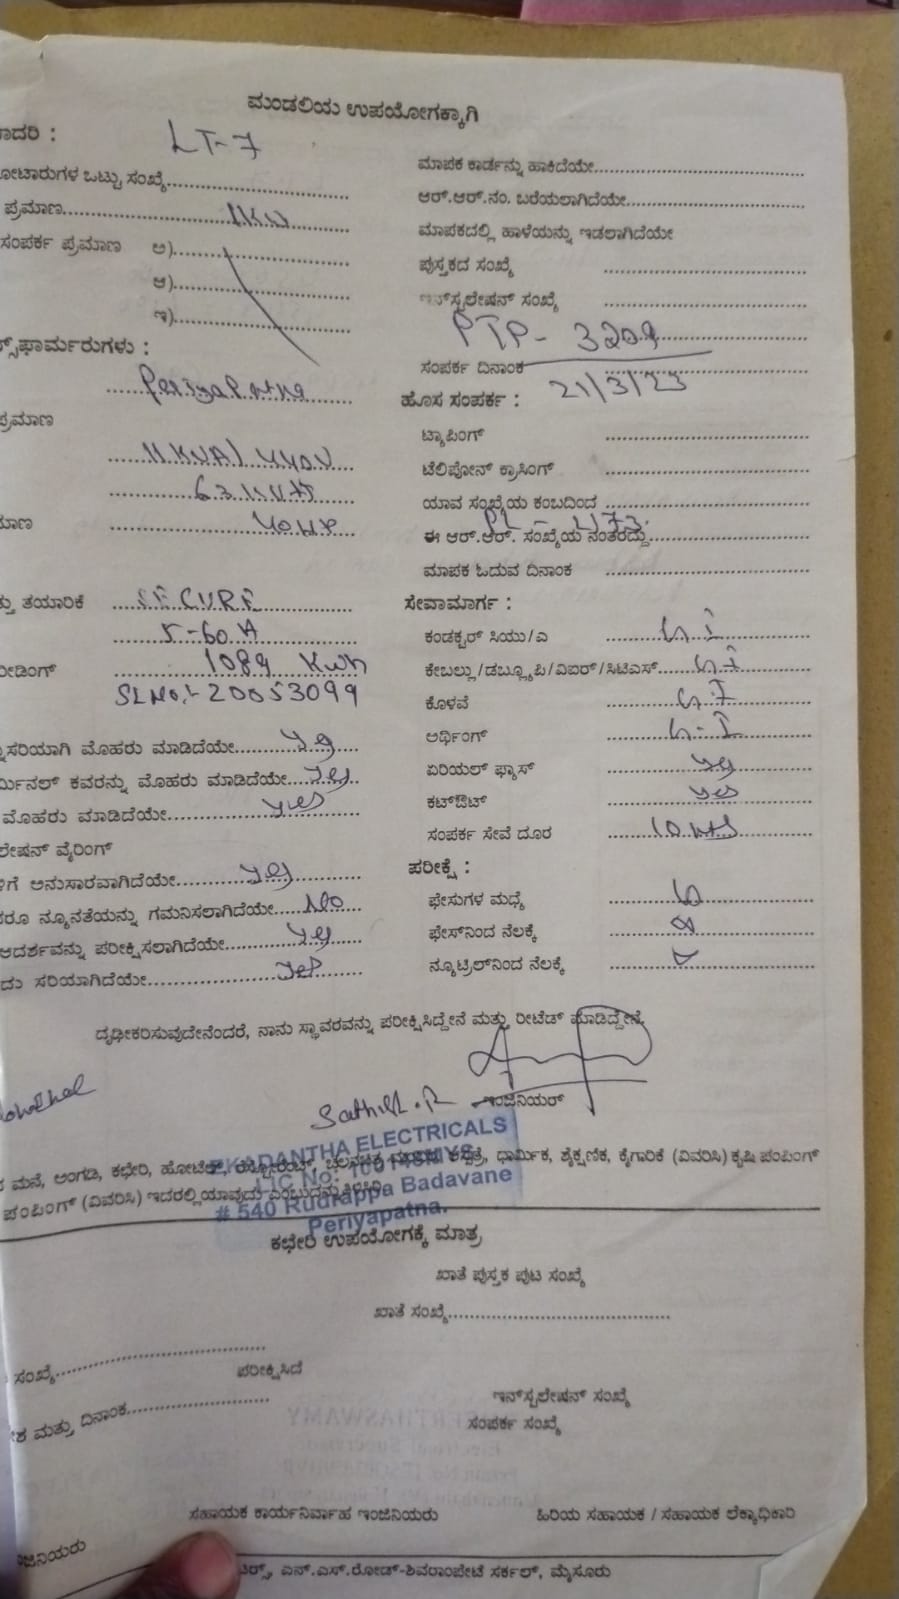 ಮಂಡಲಿಯ ಉಪಯೋಗಕ್ಕಾಗಿ
ಾದರಿ : LT-7
ೋಟಾರುಗಳ ಒಟ್ಟು ಸಂಖ್ಯೆ
ಪ್ರಮಾಣ 1KW
ಸಂಪರ್ಕ ಪ್ರಮಾಣ ಅ)
ಆ)
ಇ)
ಸ್‌ಫಾರ್ಮರುಗಳು :
Periyapatna
ಪ್ರಮಾಣ
11KVA/440V
63 KVA
ಮಾಣ 40HP
ತು ತಯಾರಿಕೆ SECURE
5-60 A
ೀಡಿಂಗ್ 1089 Kwh
SL No:- 20053099
ಸರಿಯಾಗಿ ಮೊಹರು ಮಾಡಿದೆಯೇ yes
ರ್ಮಿನಲ್ ಕವರನ್ನು ಮೊಹರು ಮಾಡಿದೆಯೇ yes
ಮೊಹರು ಮಾಡಿದೆಯೇ yes
ಲೇಷನ್ ವೈರಿಂಗ್
ಗೆ ಅನುಸಾರವಾಗಿದೆಯೇ yes
ರೂ ನ್ಯೂನತೆಯನ್ನು ಗಮನಿಸಲಾಗಿದೆಯೇ No
ಆದರ್ಶವನ್ನು ಪರೀಕ್ಷಿಸಲಾಗಿದೆಯೇ yes
ದು ಸರಿಯಾಗಿದೆಯೇ yes
ಮಾಪಕ ಕಾರ್ಡನ್ನು ಹಾಕಿದೆಯೇ
ಆರ್.ಆರ್.ನಂ. ಬರೆಯಲಾಗಿದೆಯೇ
ಮಾಪಕದಲ್ಲಿ ಹಾಳೆಯನ್ನು ಇಡಲಾಗಿದೆಯೇ
ಪುಸ್ತಕದ ಸಂಖ್ಯೆ
ಇನ್‌ಸ್ಟಲೇಷನ್ ಸಂಖ್ಯೆ
PTP- 3209
ಸಂಪರ್ಕ ದಿನಾಂಕ 21/3/23
ಹೊಸ ಸಂಪರ್ಕ :
ಟ್ಯಾಪಿಂಗ್
ಟೆಲಿಪೋನ್ ಕ್ರಾಸಿಂಗ್
ಯಾವ ಸಂಖ್ಯೆಯ ಕಂಬದಿಂದ
ಈ ಆರ್.ಆರ್. ಸಂಖ್ಯೆಯ ನಂತರದ್ದು
ಮಾಪಕ ಓದುವ ದಿನಾಂಕ
ಸೇವಾಮಾರ್ಗ :
ಕಂಡಕ್ಟರ್ ಸಿಯು/ಎ G I
ಕೇಬಲ್ಲು/ಡಬ್ಲ್ಯೂಪಿ/ವಿಐಆರ್/ಸಿಟಿಎಸ್ G I
ಕೊಳವೆ G I
ಅರ್ಥಿಂಗ್ G-I
ಏರಿಯಲ್ ಫ್ಯೂಸ್ yes
ಕಟ್‌ಔಟ್ yes
ಸಂಪರ್ಕ ಸೇವೆ ದೂರ 10 mts
ಪರೀಕ್ಷೆ :
ಫೇಸುಗಳ ಮಧ್ಯೆ
ಫೇಸ್‌ನಿಂದ ನೆಲಕ್ಕೆ
ನ್ಯೂಟ್ರಲ್‌ನಿಂದ ನೆಲಕ್ಕೆ
ದೃಢೀಕರಿಸುವುದೇನೆಂದರೆ, ನಾನು ಸ್ಥಾವರವನ್ನು ಪರೀಕ್ಷಿಸಿದ್ದೇನೆ ಮತ್ತು ರೀಟೆಡ್ ಮಾಡಿದ್ದೇನೆ.
ಇಂಜಿನಿಯರ್
EKADANTHA ELECTRICALS
LIC No:
# 540 Rudrappa Badavane
Periyapatna.
ಮನೆ, ಅಂಗಡಿ, ಕಛೇರಿ, ಹೋಟೆಲ್, ಧಾರ್ಮಿಕ, ಶೈಕ್ಷಣಿಕ, ಕೈಗಾರಿಕೆ (ವಿವರಿಸಿ) ಕೃಷಿ ಪಂಪಿಂಗ್
ಪಂಪಿಂಗ್ (ವಿವರಿಸಿ) ಇದರಲ್ಲಿ ಯಾವುದು ಎಂಬುದನ್ನು ತಿಳಿಸಿರಿ.
ಕಛೇರಿ ಉಪಯೋಗಕ್ಕೆ ಮಾತ್ರ
ಖಾತೆ ಪುಸ್ತಕ ಪುಟ ಸಂಖ್ಯೆ
ಖಾತೆ ಸಂಖ್ಯೆ
ಸಂಖ್ಯೆ
ಪರೀಕ್ಷಿಸಿದೆ
ಇನ್‌ಸ್ಟಲೇಷನ್ ಸಂಖ್ಯೆ
ಮತ್ತು ದಿನಾಂಕ
ಸಂಪರ್ಕ ಸಂಖ್ಯೆ
ಸಹಾಯಕ ಕಾರ್ಯನಿರ್ವಾಹ ಇಂಜಿನಿಯರು
ಹಿರಿಯ ಸಹಾಯಕ / ಸಹಾಯಕ ಲೆಕ್ಕಾಧಿಕಾರಿ
ಂಜಿನಿಯರು
ಎನ್.ಎಸ್.ರೋಡ್-ಶಿವರಾಂಪೇಟೆ ಸರ್ಕಲ್, ಮೈಸೂರು